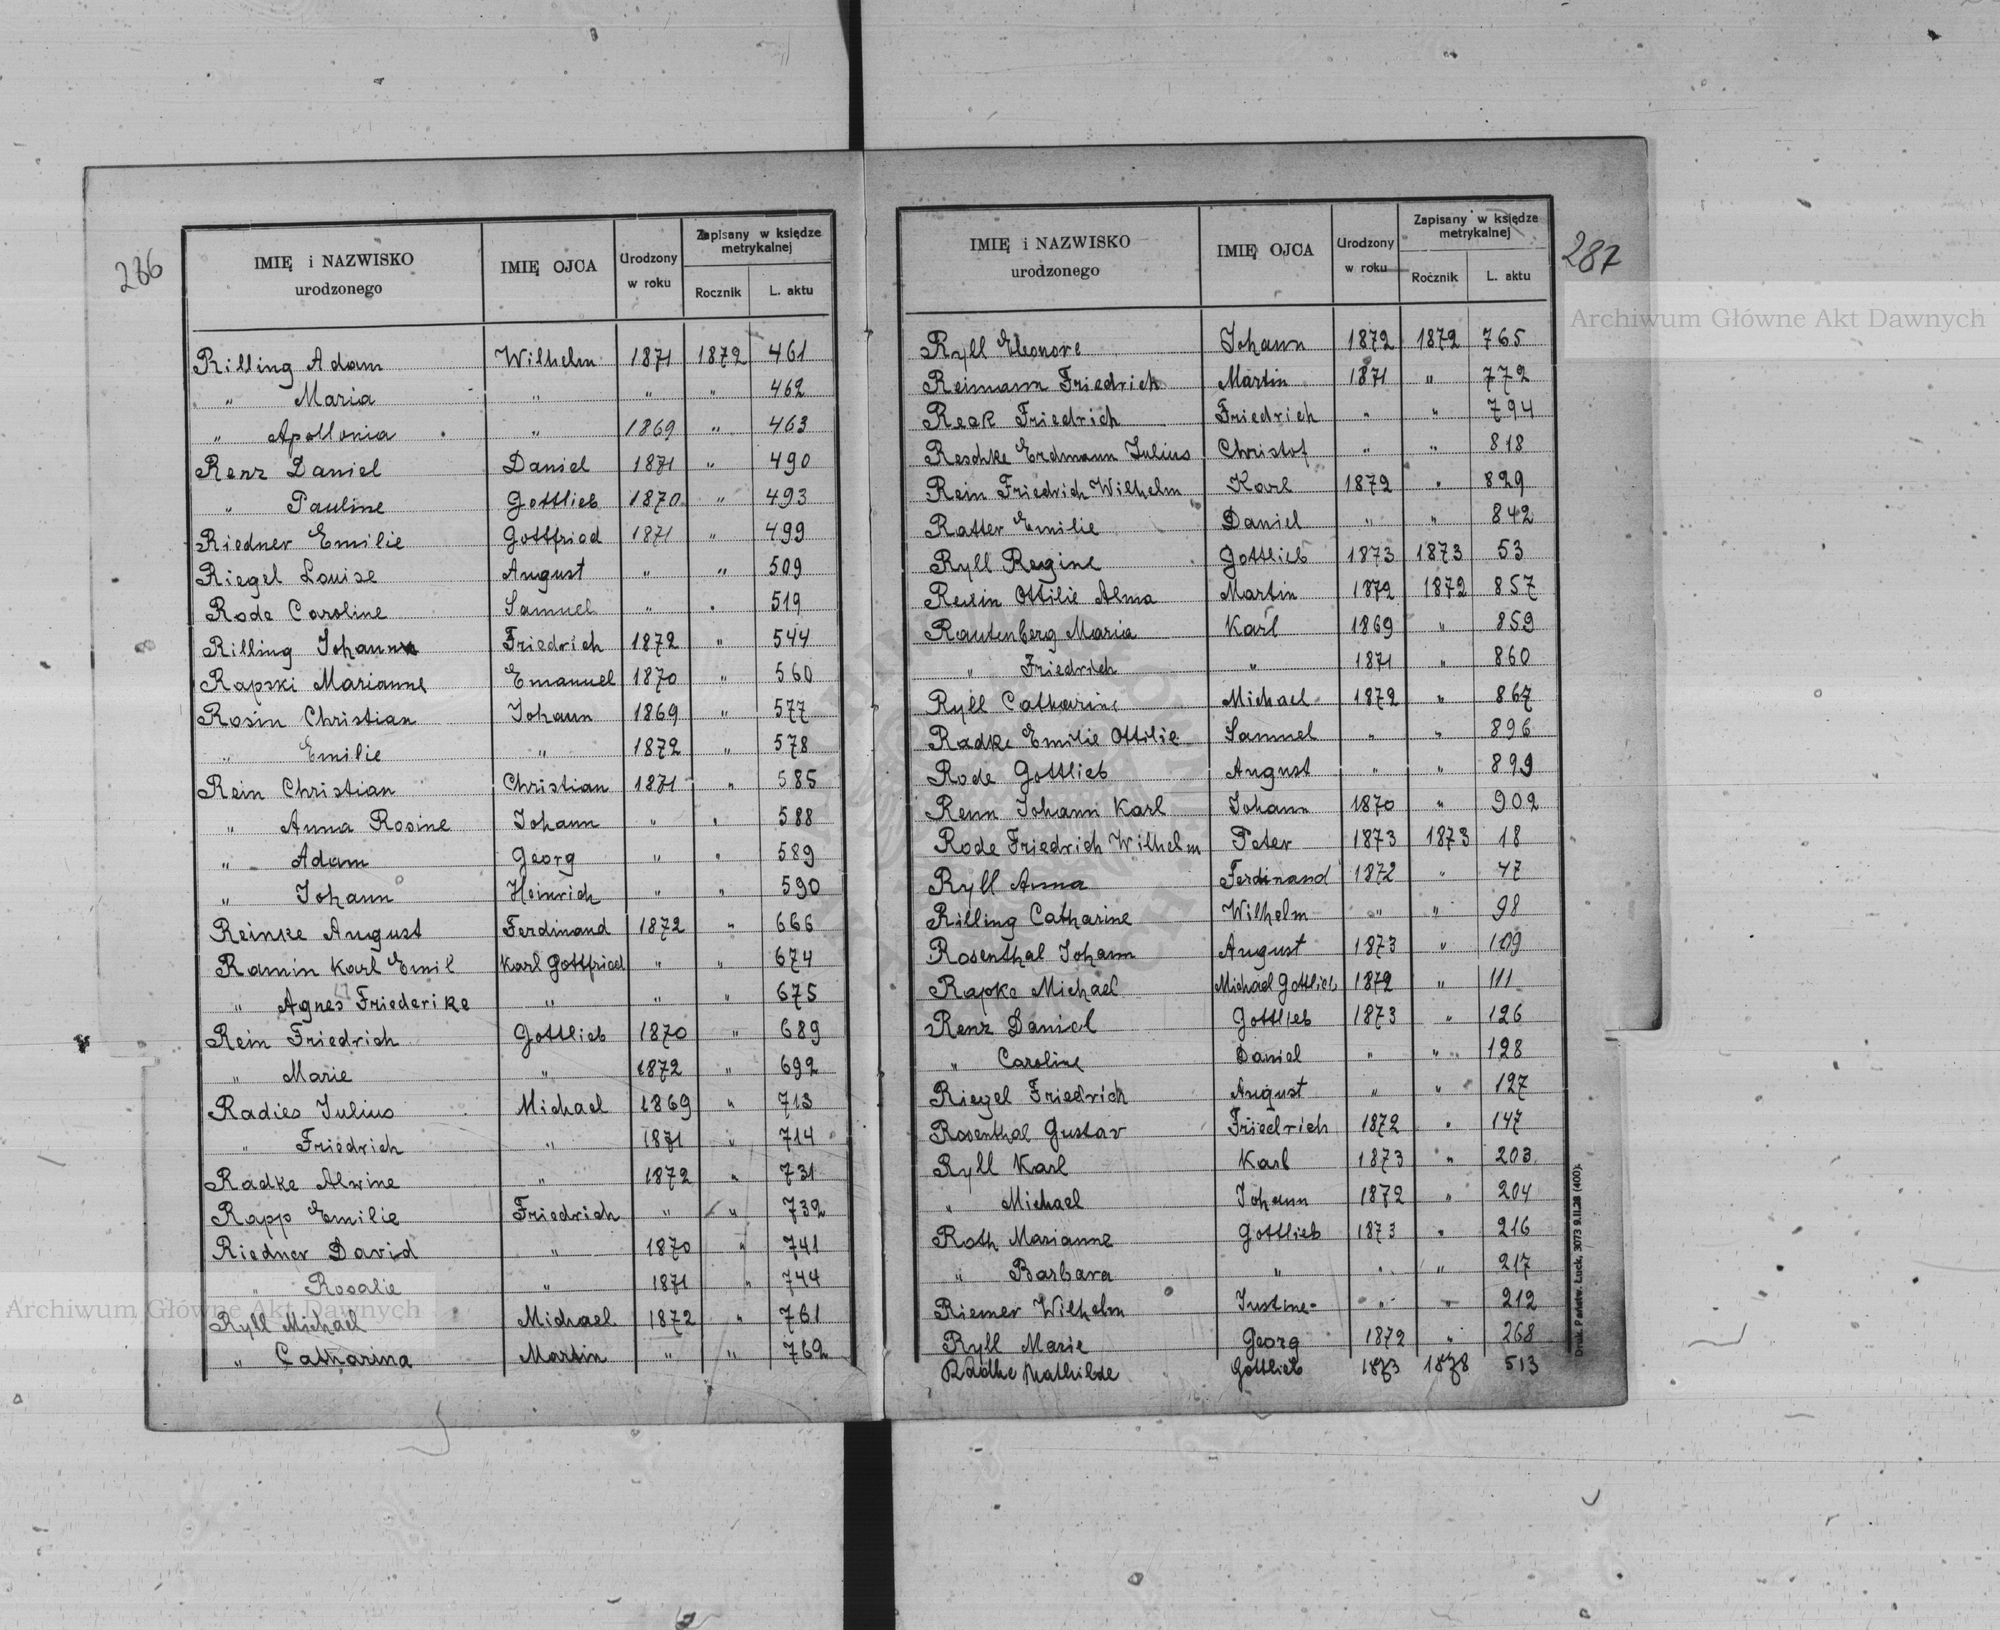 286
IMIĘ i NAZWISKO urodzonego | IMIĘ OJCA | Urodzony w roku | Zapisany w księdze metrykalnej
Rocznik | L. aktu
Rilling Adam | Wilhelm | 1871 | 1872 | 461
" Maria | " | " | " | 462
" Apollonia | " | 1869 | " | 463
Renz Daniel | Daniel | 1871 | " | 490
" Pauline | Gottlieb | 1870 | " | 493
Riedner Emilie | Gottfried | 1871 | " | 499
Riegel Louise | August | " | " | 509
Rode Caroline | Samuel | " | " | 519
Rilling Johann | Friedrich | 1872 | " | 544
Rapski Marianne | Emanuel | 1870 | " | 560
Rosin Christian | Johann | 1869 | " | 577
" Emilie | " | 1872 | " | 578
Rein Christian | Christian | 1871 | " | 585
" Anna Rosine | Johann | " | " | 588
" Adam | Georg | " | " | 589
" Johann | Heinrich | " | " | 590
Reinke August | Ferdinand | 1872 | " | 666
Ramin Karl Emil | Karl Gottfried | " | " | 674
" Agnes Friederike | " | " | " | 675
Rein Friedrich | Gottlieb | 1870 | " | 689
" Marie | " | 1872 | " | 692
Radies Julius | Michael | 1869 | " | 713
" Friedrich | " | 1871 | " | 714
Radke Alwine | " | 1872 | " | 731
Rapp Emilie | Friedrich | " | " | 732
Riedner David | " | 1870 | " | 741
" Rosalie | " | 1871 | " | 744
Ryll Michael | Michael | 1872 | " | 761
" Catharina | Martin | " | " | 762
287
IMIĘ i NAZWISKO urodzonego | IMIĘ OJCA | Urodzony w roku | Zapisany w księdze metrykalnej
Rocznik | L. aktu
Ryll Eleonore | Johann | 1872 | 1872 | 765
Reimann Friedrich | Martin | 1871 | " | 772
Reak Friedrich | Friedrich | " | " | 794
Reschke Erdmann Julius | Christof | " | " | 818
Rein Friedrich Wilhelm | Karl | 1872 | " | 829
Ratter Emilie | Daniel | " | " | 842
Ryll Regine | Gottlieb | 1873 | 1873 | 53
Ottilie Alma | Martin | 1872 | 1872 | 857
Rautenberg Maria | Karl | 1869 | " | 859
" Friedrich | " | 1871 | " | 860
Ryll Catharine | Michael | 1872 | " | 867
Radke Emilie Ottilie | Samuel | " | " | 896
Rode Gottlieb | August | " | " | 899
Renn Johann Karl | Johann | 1870 | " | 902
Rode Friedrich Wilhelm | Peter | 1873 | 1873 | 18
Ryll Anna | Ferdinand | 1872 | " | 47
Rilling Catharine | Wilhelm | " | " | 98
Rosenthal Johann | August | 1873 | " | 109
Rapke Michael | Michael Gottlieb | 1872 | " | 111
Renz Daniel | Gottlieb | 1873 | " | 126
" Caroline | Daniel | " | " | 128
Riegel Friedrich | August | " | " | 127
Rosenthal Gustav | Friedrich | 1872 | " | 147
Ryll Karl | Karl | 1873 | " | 203
" Michael | Johann | 1872 | " | 204
Roth Marianne | Gottlieb | 1873 | " | 216
" Barbara | " | " | " | 217
Riemer Wilhelm | Justine | " | " | 212
Ryll Marie | Georg | 1872 | " | 268
Radtke Mathilde | Gottlieb | 1873 | 1878 | 513
Druk. Państw. Łuck, 3073 9.II.28 (400).
Archiwum Główne Akt Dawnych
Archiwum Główne Akt Dawnych